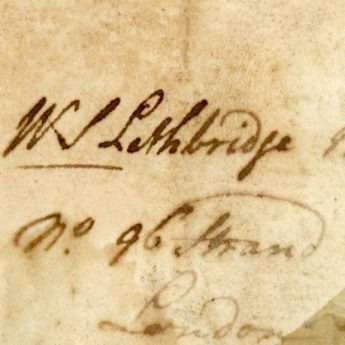 W S Lethbridge
No. 96 Strand
London